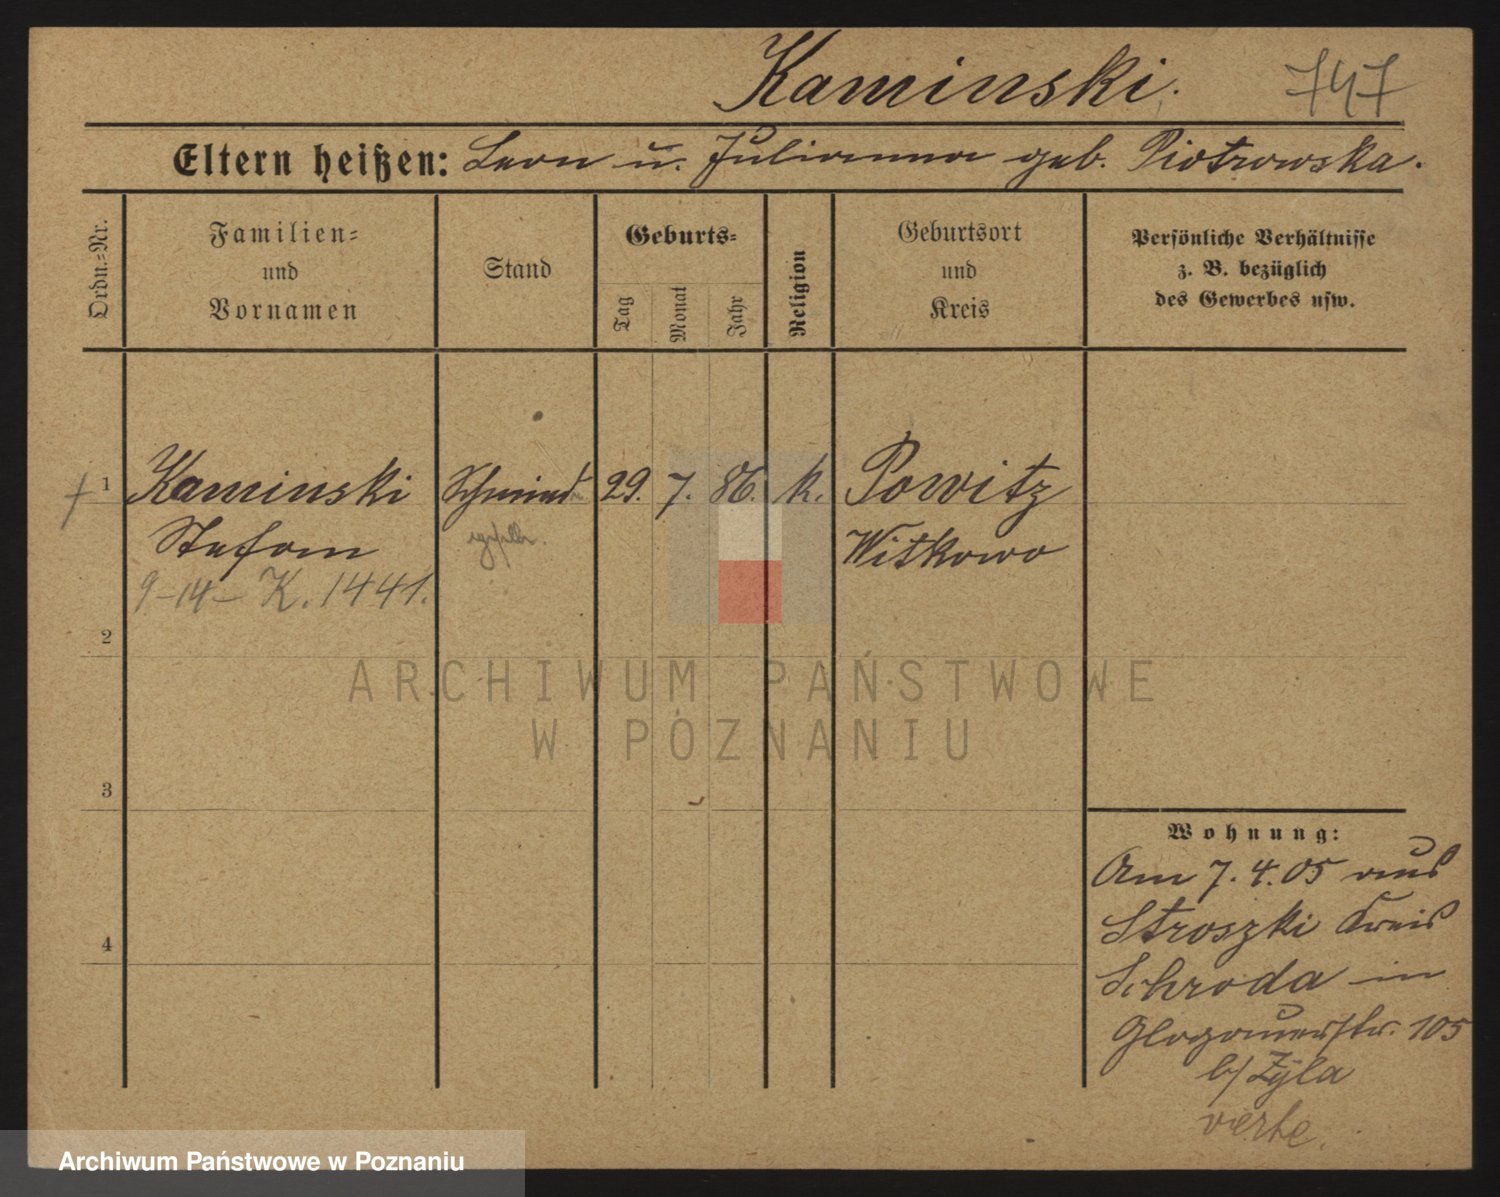 Kaminski. 747
Eltern heißen: Leon u. Julianna geb. Piotrowska.
Ordn.=Nr.
Familien=
und
Vornamen
Stand
Geburts=
Tag
Monat
Jahr
Religion
Geburtsort
und
Kreis
Persönliche Verhältnisse
z. B. bezüglich
des Gewerbes usw.
1 Kaminski Schmied 29. 7. 86. k. Powitz
Stefan Witkowo
9-14- K. 1441.
2
3
4
Wohnung:
Am 7. 4. 05 aus
Stroszki Kreis
Schroda in
Glogauerstr. 105
b/ Zyla
verte.
ARCHIWUM PAŃSTWOWE
W POZNANIU
Archiwum Państwowe w Poznaniu